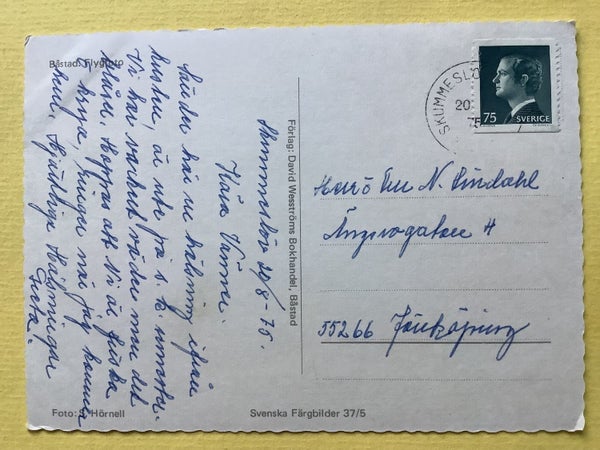 Båstad. Flygfoto
Skummeslöv 20/8-75.
Kära Vänner.
Sänder här en hälsning ifrån
kusten, är ute på s.k. semester.
Vi har vackert väder men det
blåser. Hoppas att Ni är friska
o krya, ringer när jag kommer
hem. Hjärtliga Hälsningar
Greta.
Foto: Hörnell
Förlag: David Wesströms Bokhandel, Båstad
Svenska Färgbilder 37/5
SKUMMESLÖ
20
75
75 SVERIGE
Herr o Fru N. Lindahl
4
55266 Jönköping